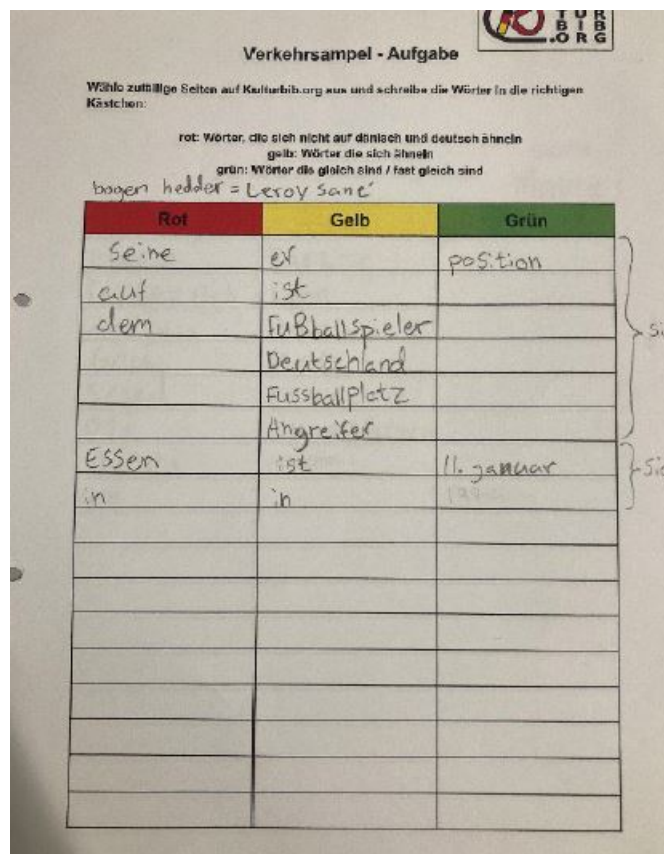 TUR
BIB
.ORG
Verkehrsampel - Aufgabe
Wähle zufällige Seiten auf Kulturbib.org aus und schreibe die Wörter in die richtigen
Kästchen:
rot: Wörter, die sich nicht auf dänisch und deutsch ähneln
gelb: Wörter die sich ähneln
grün: Wörter die gleich sind / fast gleich sind
bogen hedder = Leroy Sané
Rot Gelb Grün
Seine er position
auf ist
dem Fußballspieler
Deutschland
Fussballplatz
Angreifer
Essen ist 11. januar
in in